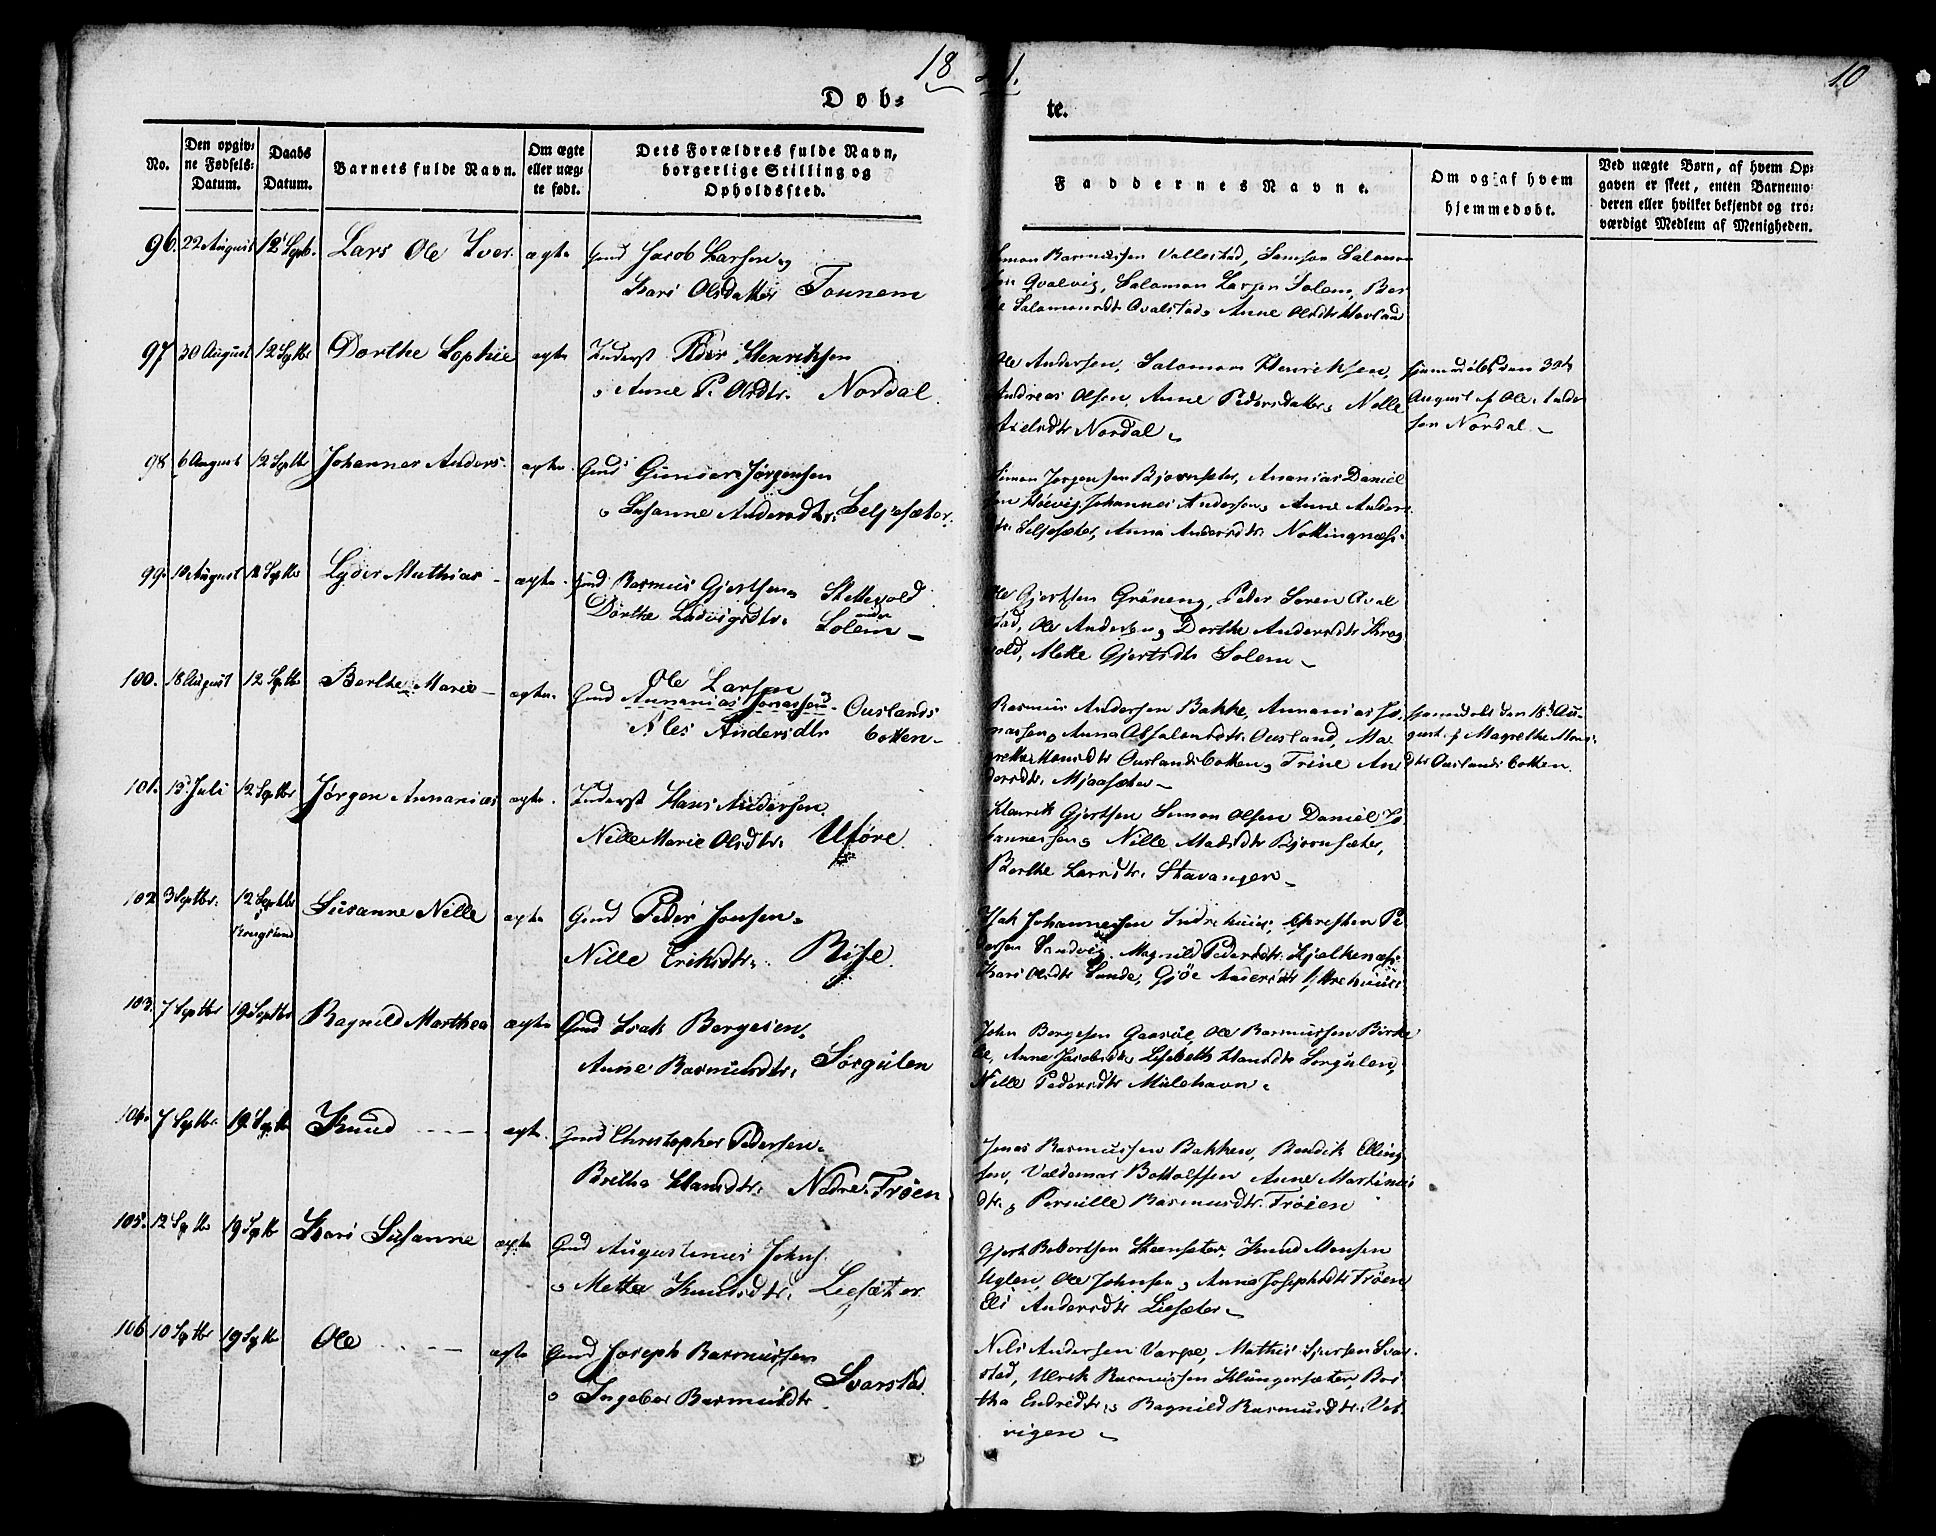 18 41.
10
Døb-
te.
No.
Den opgiv-
ne Fødsels-
Datum.
Daabs
Datum.
Barnets fulde Navn.
Om ægte
eller uæg-
te født.
Dets Forældres fulde Navn,
borgerlige Stilling og
Opholdssted.
Faddernes Navne.
Om og af hvem
hjemmedøbt.
Ved uægte Børn, af hvem Op-
gaven er skeet, enten Barnemo-
deren eller hvilket bekjendt og tro-
værdige Medlem af Menigheden.
96. 22 August 12 Septb. Lars Ole Iver ægte Gmd Jacob Larsen og
Kari Olsdatter Tonnem
Simon Rasmussen Vallestad, Samson Salomon
sen Qvalvig, Salomon Larsen Solem, Ber
te Salomonsdtr Qvalstad, Anne Olsdtr Hovland
97 30 August 12 Septbr Dorthe Sophie ægte Inderst Peder Henriksen
o Anne P. Olsdtr. Nordal.
Ole Andersen, Salomon Henriksen,
Andreas Olsen, Anne Pedersdatter, Nille
Axelsdtr Nordal
hjemmedøbt den 30te
August af Ole Ander
sen Nordal
98 6 August 12 Septbr Johannes Anders. ægte Gmd Gunder Jørgensen
o Susanne Andersdtr. Seljesæter.
Simon Jørgensen Bjørnsæter, Ananias Daniel
sen Høivig, Johannes Andersen, Anne Anders
dtr Seljesæter, Anna Andersdtr Nottingnæss
99. 10 August 12 Septbr Lyder Mathias ægte Gmd Rasmus Gjertsen Stellevold
Dorthe Ludvigsdtr. under
Solem
Ole Gjertsen Grøneng, Peder Soren Aval
stad, Ole Andersen, Dorthe Andersdtr Krog
vold, Mette Gjertsdtr Solem
100. 18 August 12 Septbr Berthe Marie ægte Gmd Ole Larsen
Annanias Jonassen Ouslands
Ales Andersdtr botten
Rasmus Andersen Bakke, Annanias Jo
nassen, Anna Absalonsdtr. Ousland, Ma
grethe Monsdtr Ouslandsbotten, Trine An
dersdtr. Mjaasæter
hjemmedøbt den 18de Au-
gust af Magrethe Mons
dtr Ouslandsbotten.
101. 15 Juli 12 Septbr Jørgen Annanias ægte. Inderst Hans Andersen
Nille Marie Olsdtr. Uføre.
Henrik Gjertsen Simon Olsen Daniel Jo
hannessen, Nille Matsdtr Bjørnsæter,
Berthe Larsdtr. Stavangen
102 3 Septbr. 12 Septbr Susanne Nille ægte Gmd Peder Jonsen
Nille Eriksdtr. Rise.
Isak Johannessen Indrehuus, Christen Pe
dersen Sandvig, Magnild Pedersdtr Hjelkenæss
Kari Olsdtr Sunde, Gjøe Andersdtr Ittrehuus
103. 7 Septbr 19 Septbr Ragnild Marthea ægte Gmd Isak Børgesen
Anne Rasmusdtr. Sørgulen
John Børgesen Gaasøe, Ole Rasmussen Birke
, Anne Jacobsdtr, Lisbeth Hansdtr Sorgulen,
Nille Pedersdtr Mulehavn.
104. 7 Septbr. 19 Septbr Knud ægte. Gmd Christopher Pedersen
Britha Hansdtr. Nedre Frøen
Jonas Rasmussen Bakken, Bendik Elling
sen, Valdemar Bottolfsen Anne Martines
dtr., Pernille Rasmusdtr. Frøien
105. 12 Septbr 19 Septbr Kari Susanne ægte Gmd Augustinus Johns.
o Mette Knudsdtr. Leesæter
Gjert Robertsen Steensæter, Knud Monsen
Uglen, Ole Johnsen, Anne Josephsdtr Frøen,
Eli Andersdtr Leesæter
106 10 Septbr 19 Septbr Ole ægte Gmd Joseph Rasmussen
o Ingebor Rasmusdtr Svarstad.
Nils Andersen Varpe, Mathis Sjursen Svar
stad, Ulrik Rasmussen Klungersæter, Bri
tha Endredtr., Ragnild Rasmusdtr. Vet
vigen